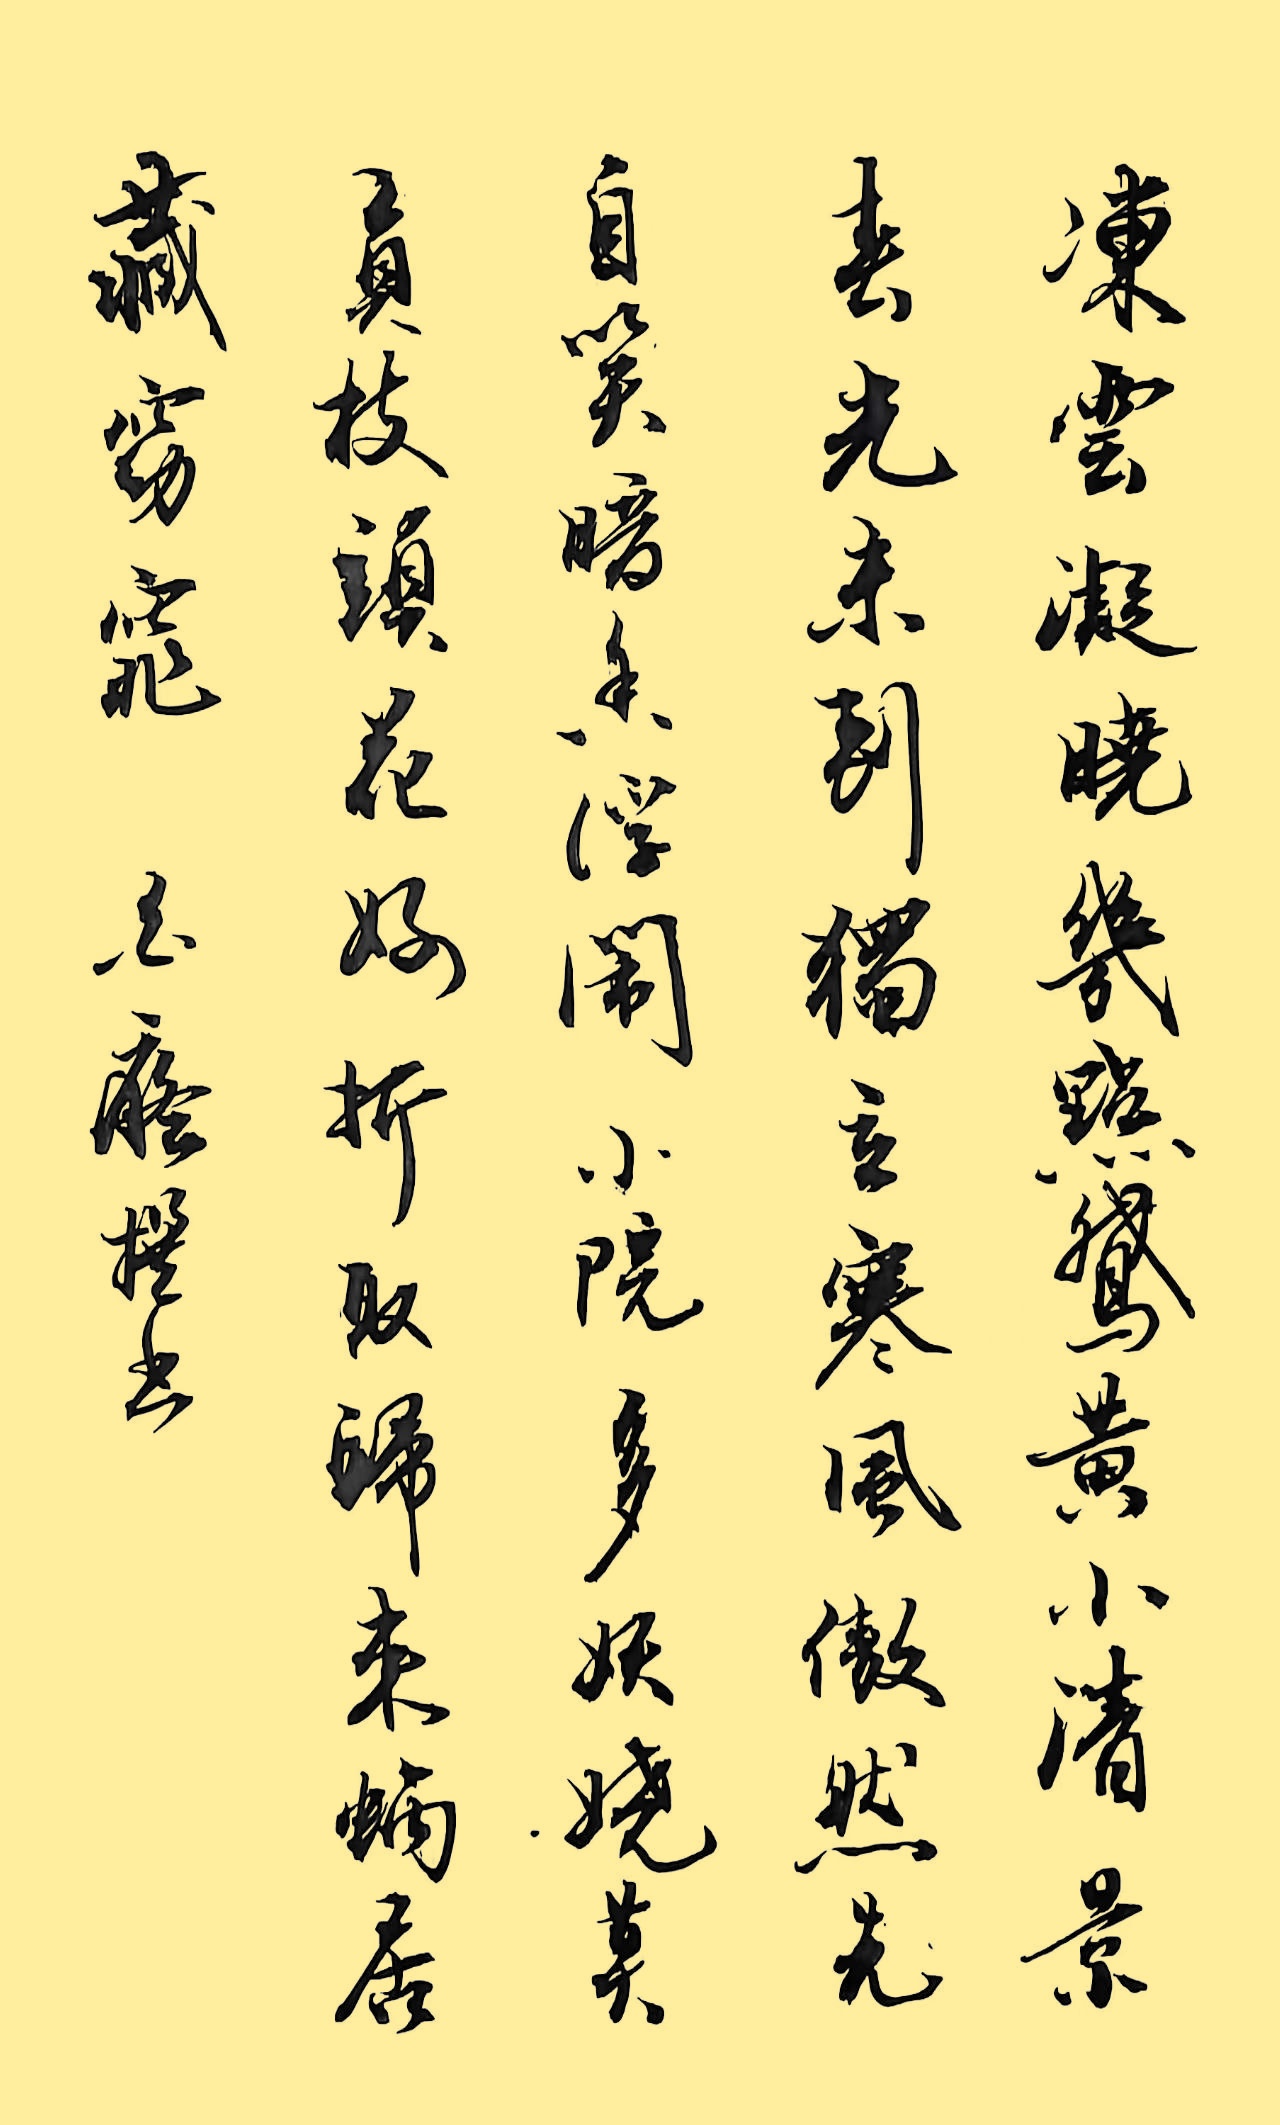 凍雲凝曉幾點鵞黃小清景
春光未到獨立寒風傲然先
自笑暗香浮鬧小院多妖嬈莫
負枝頭花好折取歸來蝸居
藏窈窕 癡撰书